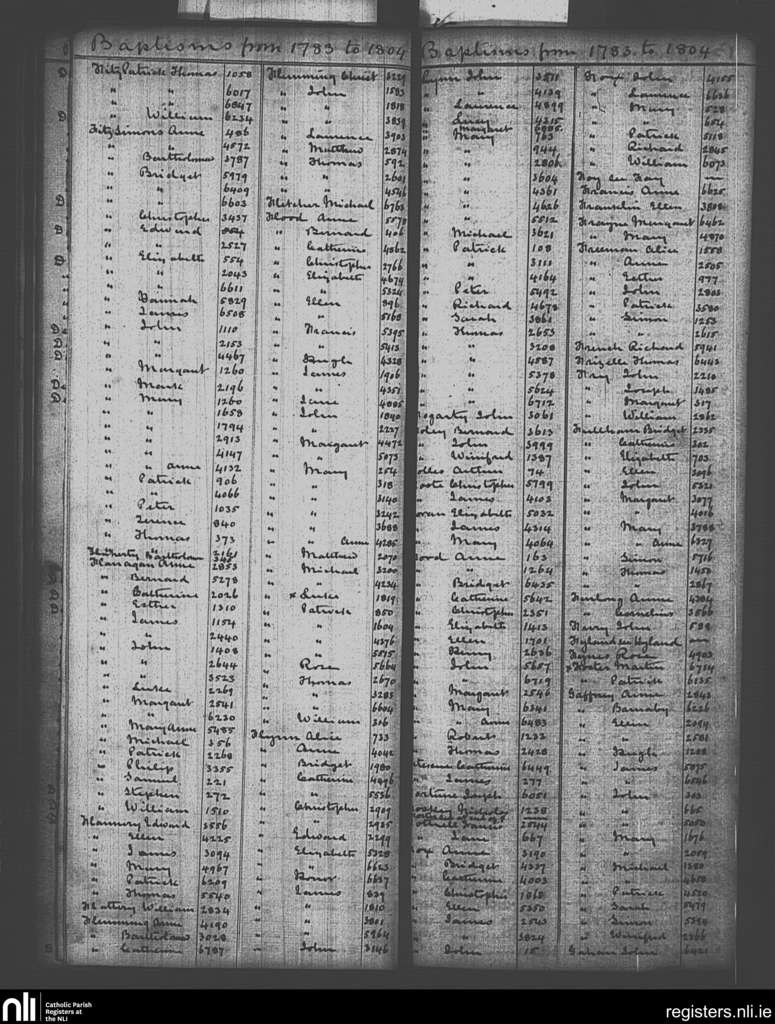 Baptisms from 1783 to 1804
FitzPatrick Thomas 1058
" " 6017
" " 6847
" William 6234
FitzSimons Anne 486
" " 4572
" Bartholomew 3787
" Bridget 5979
" " 6409
" " 6603
" Christopher 3437
" Edward
" " 2527
" Elizabeth 554
" " 2043
" " 6611
" Hannah 5829
" James 6508
" John 1110
" " 2153
" " 4467
" Margaret 1260
" Mark 2196
" Mary 1260
" " 1658
" " 1794
" " 2913
" " 4147
" " Anne 4132
" Patrick 906
" " 4066
" Peter 1035
" Terence 840
" Thomas 373
Flanagan Anne 2853
" Bernard 5278
" Catherine 2026
" Esther 1310
" James 1154
" " 2440
" John 1408
" " 2644
" " 3523
" Luke 2269
" Margaret 2541
" " 6230
" Mary Anne 5485
" Michael 356
" Patrick 2268
" Philip 3355
" Samuel 221
" Stephen 272
" William 1510
Flannery Edward 3556
" Ellen 4225
" James 3094
" Mary 4967
" Patrick 6209
" Thomas 5540
Flattery William 2834
Flemming Anne 4190
" Bartholomew 3028
" Catherine 6787
Flemming Christ 3229
" John 1583
" " 1818
" " 3839
" Laurence 3903
" Matthew 2874
" Thomas 592
" " 2601
" " 4546
Fletcher Michael 6763
Flood Anne 5570
" Bernard 406
" Catherine 4362
" Christopher 2766
" Elizabeth 4674
" " 5324
" Ellen 896
" " 5168
" Francis 5395
" " 5413
" Hugh 4328
" James 1906
" " 4351
" Jane 4885
" John 1840
" " 2237
" Margaret 4472
" " 5073
" Mary 254
" " 318
" " 3140
" " 3242
" " 3688
" " Anne 4285
" Matthew 2070
" Michael 3200
" " 4234
" × Luke 1819
" Patrick 850
" " 1604
" " 4376
" " 5575
" Rose 5664
" Thomas 2670
" " 3285
" " 6604
" William 306
Flynn Alice 733
" Anne 4042
" Bridget 1980
" Catherine 4896
" " 5536
" Christopher 2909
" " 2925
" Edward 2299
" Elizabeth 5328
" " 6623
" Honor 6637
" James 839
" " 1810
" " 3801
" " 5964
" John 3146
Baptisms from 1783 to 1804
Flynn John 3511
" " 4139
" Laurence 4899
" Lucy 4315
" Margaret
" Mary 763
" " 944
" " 2806
" " 3604
" " 4361
" " 4626
" " 5512
" Michael 3621
" Patrick 108
" " 3111
" " 4164
" Peter 5492
" Richard 4678
" Sarah 3861
" Thomas 2653
" " 3208
" " 4587
" " 5378
" " 5624
" " 6712
ogarty John 3061
oley Bernard 3613
" John 3999
" Winifred 1387
olles Arthur 74
oote Christopher 5799
" James 4103
oran Elizabeth 5032
" James 4314
" Mary 4064
oord Anne 163
" " 1264
" Bridget 6435
" Catherine 5642
" Christopher 2351
" Elizabeth 1413
" Ellen 1701
" Henry 2636
" John 5657
" " 6719
" Margaret 2546
" Mary 6341
" " Anne 6483
" Robert 1232
" Thomas 2428
Catherine 6449
" James 277
ortune Joseph 6051
1238
James 2544
" Jane 667
ox Anne 3190
" Bridget 4337
" Catherine 4003
" Christopher 1868
" Ellen 5350
" James 2543
" " 3824
" John 15
Fox John 4155
" Laurence 6636
" Mary 528
" " 654
" Patrick 5118
" Richard 2845
" William 6073
Foy see Fay —
Francis Anne 6625
Franklin Ellen 3808
Frayne Margaret 6462
" Mary 4870
Freeman Alice 1550
" Anne 2505
" Esther 977
" John 2803
" Patrick 3580
" Simon 1253
" " 2615
French Richard 5941
Frizelle Thomas 6443
Fry John 2210
" Joseph 1485
" Margaret 317
" William 2862
Fullham Bridget 2335
" Catherine 302
" Elizabeth 703
" Ellen 3096
" John 5321
" Margaret 3077
" " 4016
" Mary 3788
" " Anne 6329
" Simon 5716
" Thomas 1450
" " 2867
Furlong Anne 4384
" Cornelius 3566
Furry John 538
Fyland see Hyland
Fynes Rose 4903
Foster Martin 6734
" Patrick 6135
Gaffney Anne 2843
" Barnaby 6226
" Ellen 2094
" " 2581
" Hugh 1208
" James 5075
" " 6506
" John 303
" " 665
" " 5050
" Mary 1676
" " 2059
" Michael 1380
" " 4658
" Patrick 4520
" Sarah 5479
" Simon 5398
" Winifred 2366
Gahan John 6421
nli Catholic Parish Registers at the NLI
registers.nli.ie